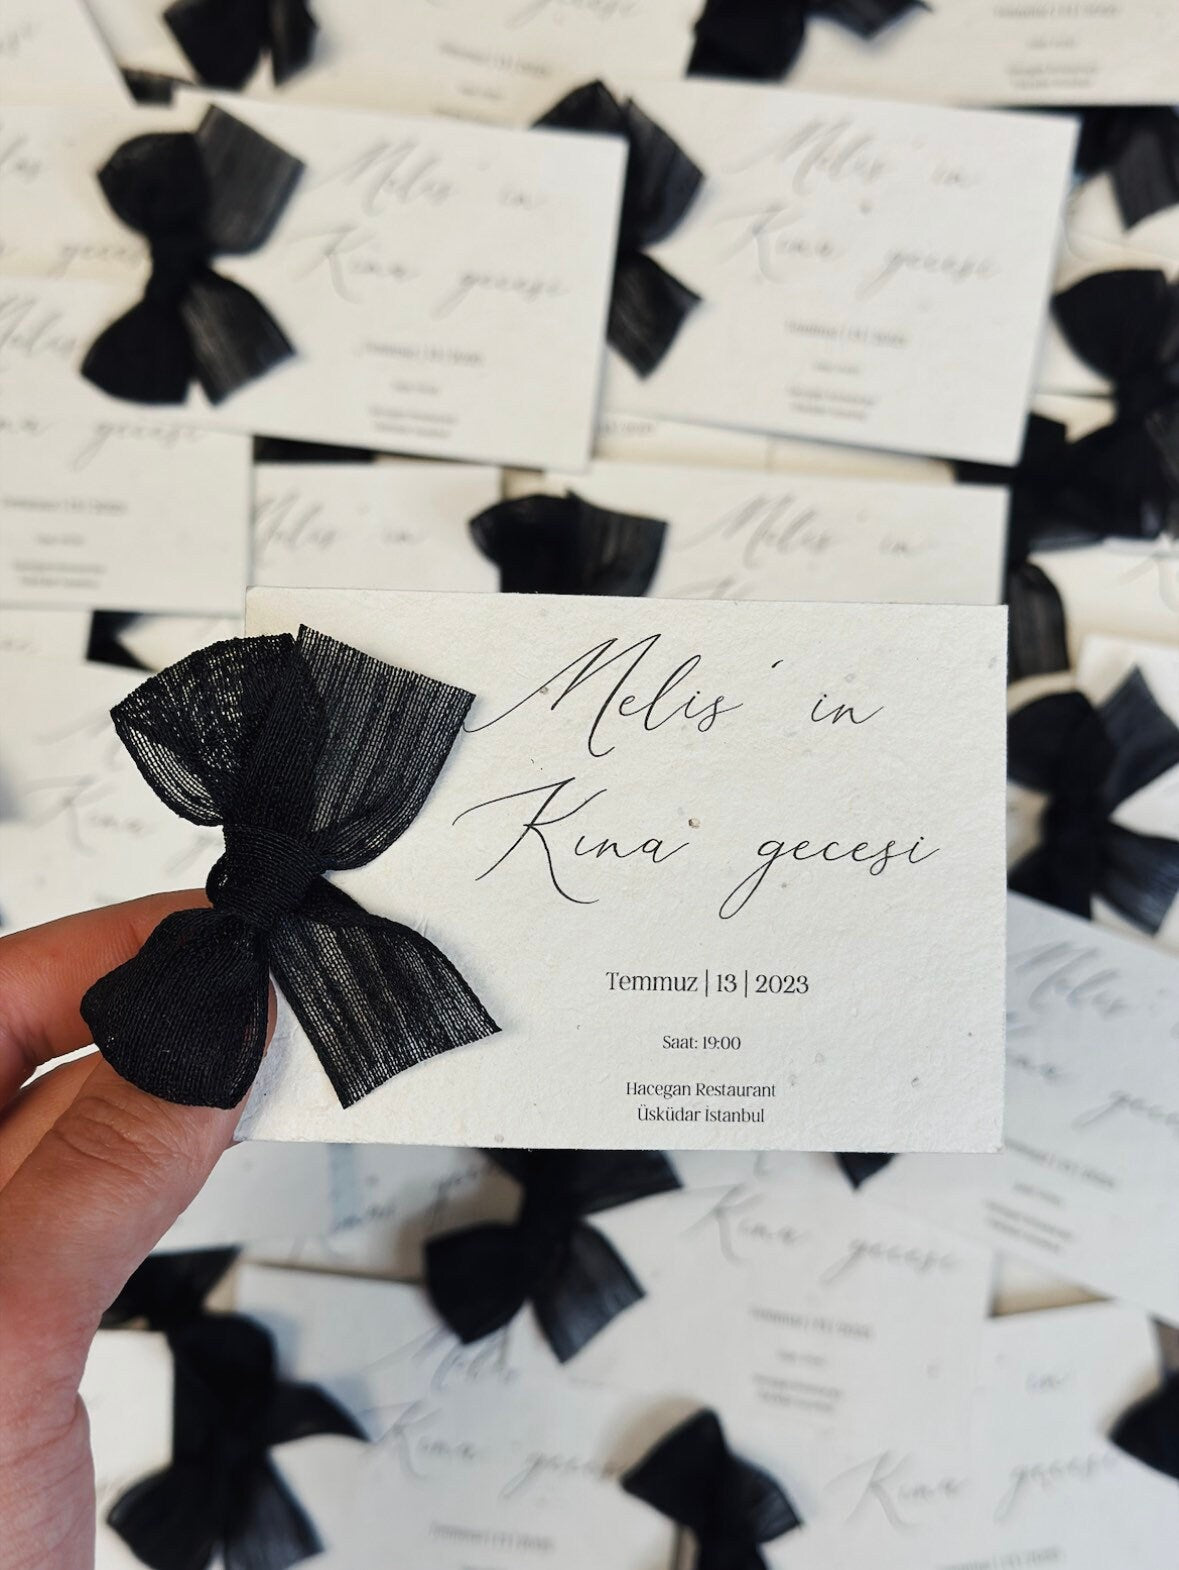 Melis' in
Kına gecesi
Temmuz | 13 | 2023
Saat: 19:00
Hacegan Restaurant
Üsküdar İstanbul